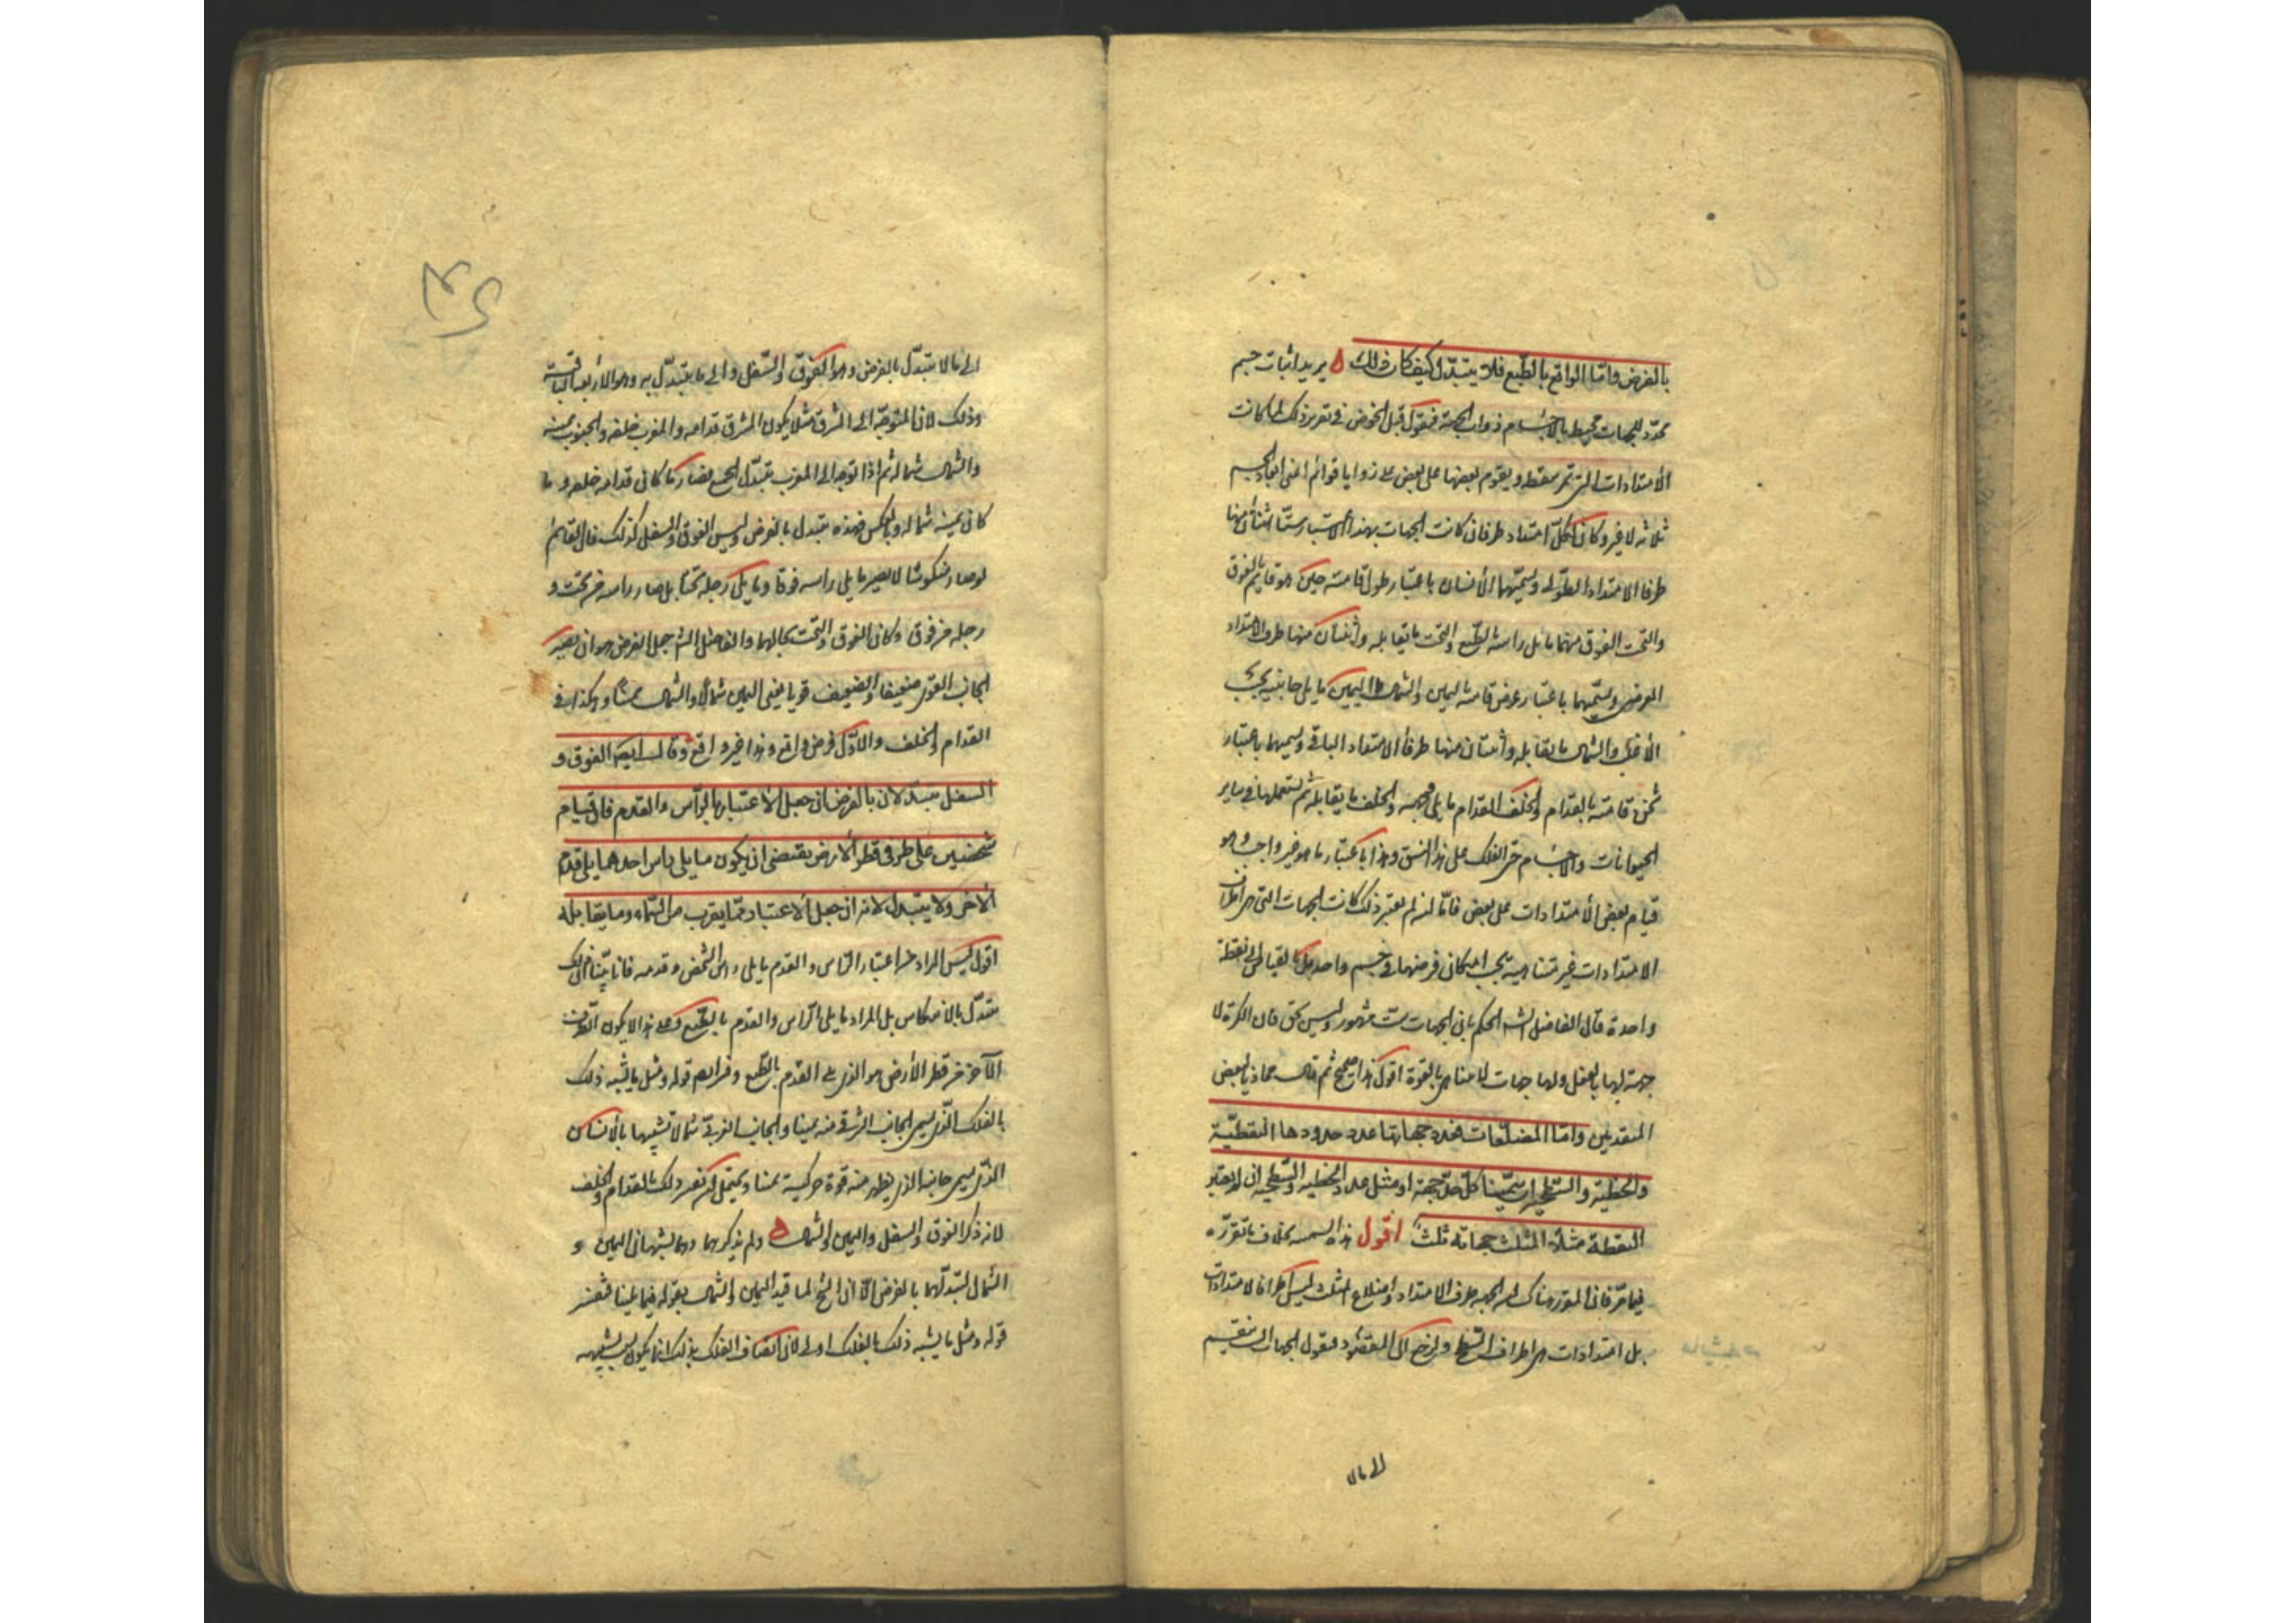 بالفرض واما الواقع بالطبع فلا يتبدل كيف كان ذلك ه يريد اثبات جسم
محدد للجهات محيط بالاجسام ذوات الجهة فنقول قبل الخوض فى تقرير ذلك لما كانت
الامتدادات التى تمر بنقطة ويقوم بعضها على بعض على زوايا قوائم اعنى ابعاد الجسم
ثلاثة لا غير وكان لكل امتداد طرفان كانت الجهات بهذا الاعتبار ستا اثنان منها
طرفا الامتداد الطولى ويسميهما الانسان باعتبار طول قامته حين هو قايم بالفوق
والتحت الفوق منهما ما يلى راسه بالطبع والتحت ما يقابله واثنان منها طرفا الامتداد
العرضى ويسميهما باعتبار عرض قامته باليمين والشمال اليمين ما يلى جانبيه بحسب
الاغلب والشمال ما يقابله واثنان منها طرفا الامتداد الباقى ويسميهما باعتبار
ثخن قامته بالقدام والخلف القدام ما يلى وجهه والخلف ما يقابله ثم يستعملها فى ساير
الحيوانات والاجسام حتى الفلك على هذا النسق وهذا باعتبار ما هو غير واجب وهو
قيام بعض الامتدادات على بعض فاما ان لم يعتبر ذلك كانت الجهات التى هى اطراف
الامتدادات غير متناهية بحسب امكان فرضها فى جسم واحد بل بالقياس الى نقطة
واحدة قال الفاضل الشه الحكم بان الجهات ست مشهور وليس بحق فان الكرة لا
جهة لها بالفعل ولها جهات لا متناهى بالقوة اقول هذا صحيح ثم قال محاذيا لبعض
المتقدمين واما المضلعات فعدد جهاتها عدد حدودها النقطية
والخطية والسطحية ان سمينا كل حد جهة او مثل عدد الخطية والسطحية ان لم يعتبر
النقطة مثلا المثلث جهاته ثلث اقول هذه التسمية بخلاف ما تقرر
فيما مر فان المقرر هناك ان الجهة طرف الامتداد واضلاع المثلث ليس اطرافا لامتدادات
بل امتدادات هى اطراف السطح ولنرجع الى المقصود فنقول الجهات الست تنقسم
الى ما لا
الى ما لا يتبدل بالفرض وهو الفوق والسفل والى ما يتبدل به وهو الاربعة الباقية
وذلك لان المتوجه الى المشرق مثلا يكون المشرق قدامه والمغرب خلفه والجنوب يمينه
والشمال شماله ثم اذا توجه الى المغرب تبدل الجميع فصار ما كان قدامه خلفه وما
كان يمينه شماله وبالعكس فهذه يتبدل بالفرض وليس الفوق والسفل كذلك فان القائم
لو صار منكوسا لا يصير ما يلى راسه فوقا وما يلى رجله تحتا بل صار راسه من تحت و
رجله من فوق وكان الفوق والتحت بحالهما والفاضل الشه جعل الفرض هو ان يصير
الجانب القوى ضعيفا والضعيف قويا يعنى اليمين شمالا والشمال يمينا وهكذا فى
القدام والخلف والاول فرض واقع وهذا غير واقع وقال ايضا الفوق و
السفل يتبدلان بالفرض ان جعل الاعتبار بالراس والقدم فان قيام
شخصين على طرفى قطر الارض يقتضى ان يكون ما يلى راس احدهما يلى قدم
الاخر ولا يتبدل لانه ان جعل الاعتبار بما يقرب من السماء وما يقابله
اقول ليس المراد من اعتبار الراس والقدم ما يلى راس الشخص وقدمه فانا بينا ان ذلك
متبدل بالانعكاس بل المراد ما يلى الراس والقدم بالطبع وعلى هذا لا يكون الطرف
الآخر من قطر الارض هو الذى يلى القدم بالطبع وفى اكثرهم قوله ومثل ما يشبه ذلك
بالفلك الذى يسمى الجانب الشرقى منه يمينا والجانب الغربى شمالا تشبيها بالانسان
الذى يسمى جانبه الذى يظهر منه قوة حركية يمينا ويحتمل ان يفسر ذلك بالقدام والخلف
لانه ذكر الفوق والسفل واليمين والشمال ه ولم يذكرهما وهما يشبهان اليمين و
الشمال لتبدلهما بالفرض الا ان الشيخ لما قيد اليمين والشمال بقوله فيما يلينا فتفسير
قوله ومثل ما يشبه ذلك بالفلك اولى لان اتصاف الفلك بذلك انما يكون بسبب تشبيهه